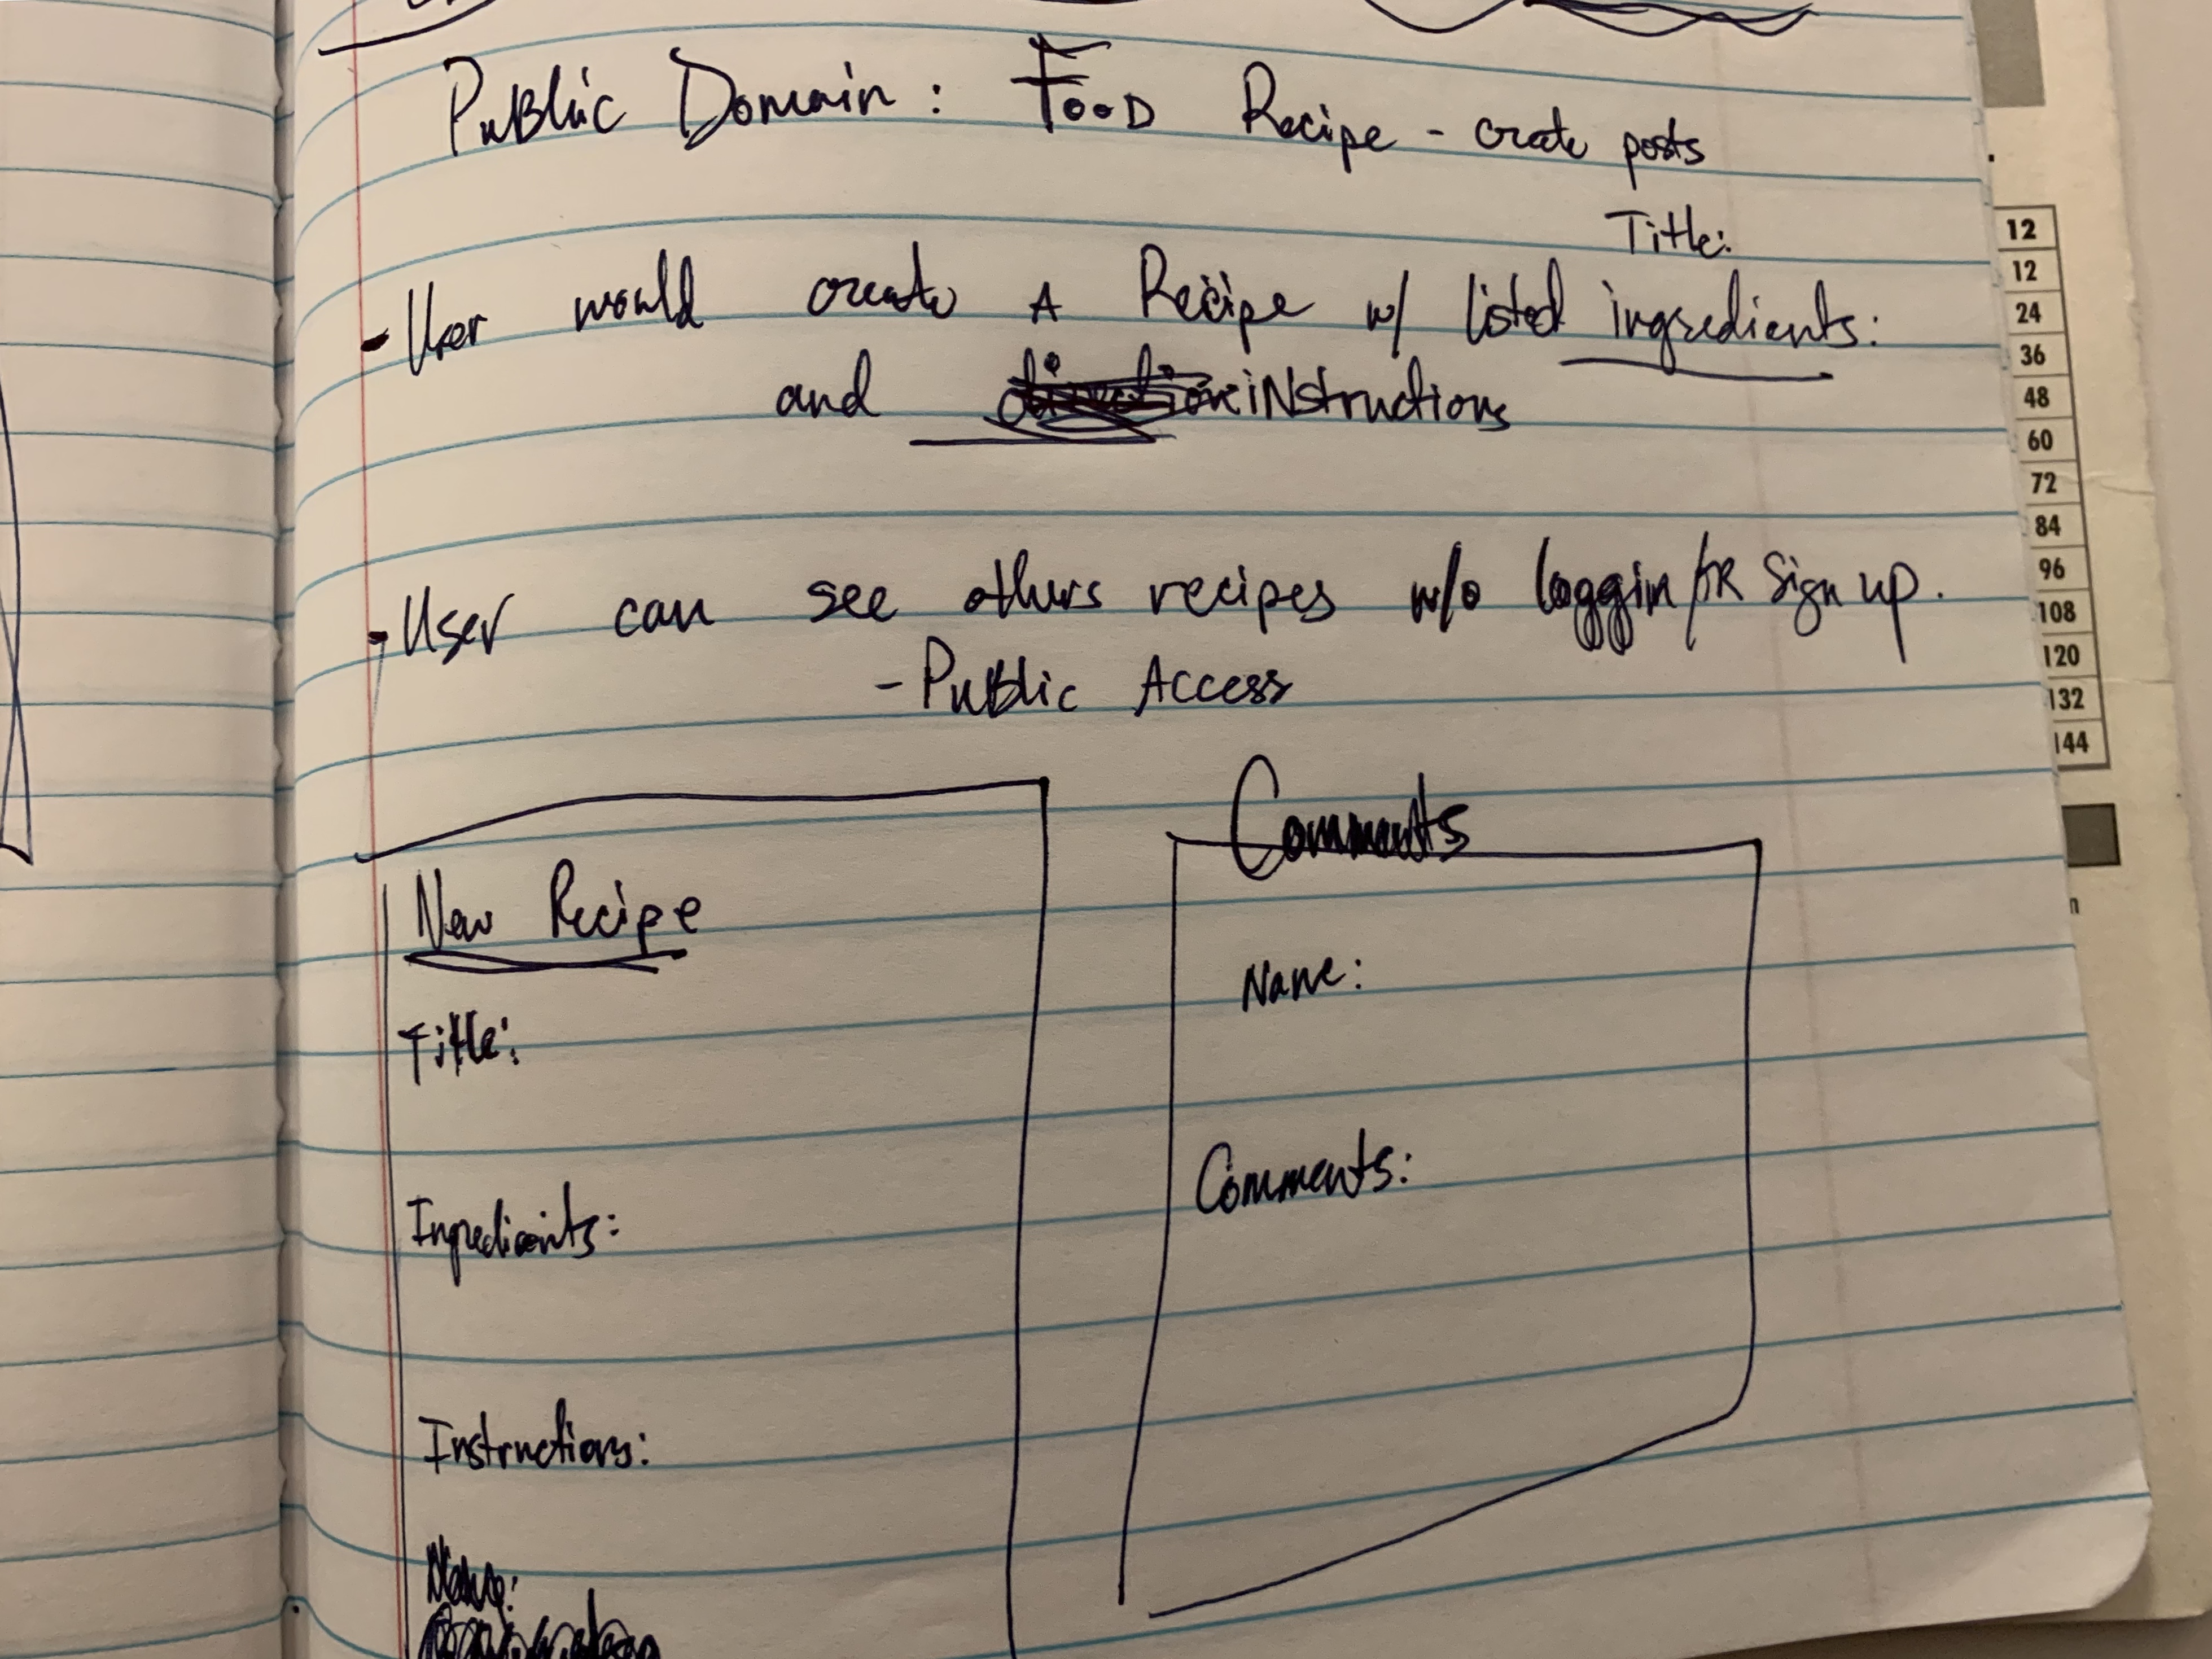 Public Domain: Food Recipe - create posts
Title:
- User would create A Recipe w/ listed ingredients:
and iNstructions
- User can see others recipes w/o loggin/OR Sign up.
- Public Access
New Recipe
Title:
Ingredients:
Instructions:
Name:
Comments
Name:
Comments:
12
12
24
36
48
60
72
84
96
108
120
132
144
n